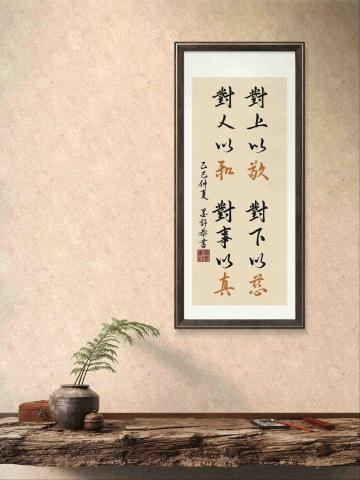 對上以敬 對下以慈
對人以和 對事以真
乙巳仲夏 墨許黎書